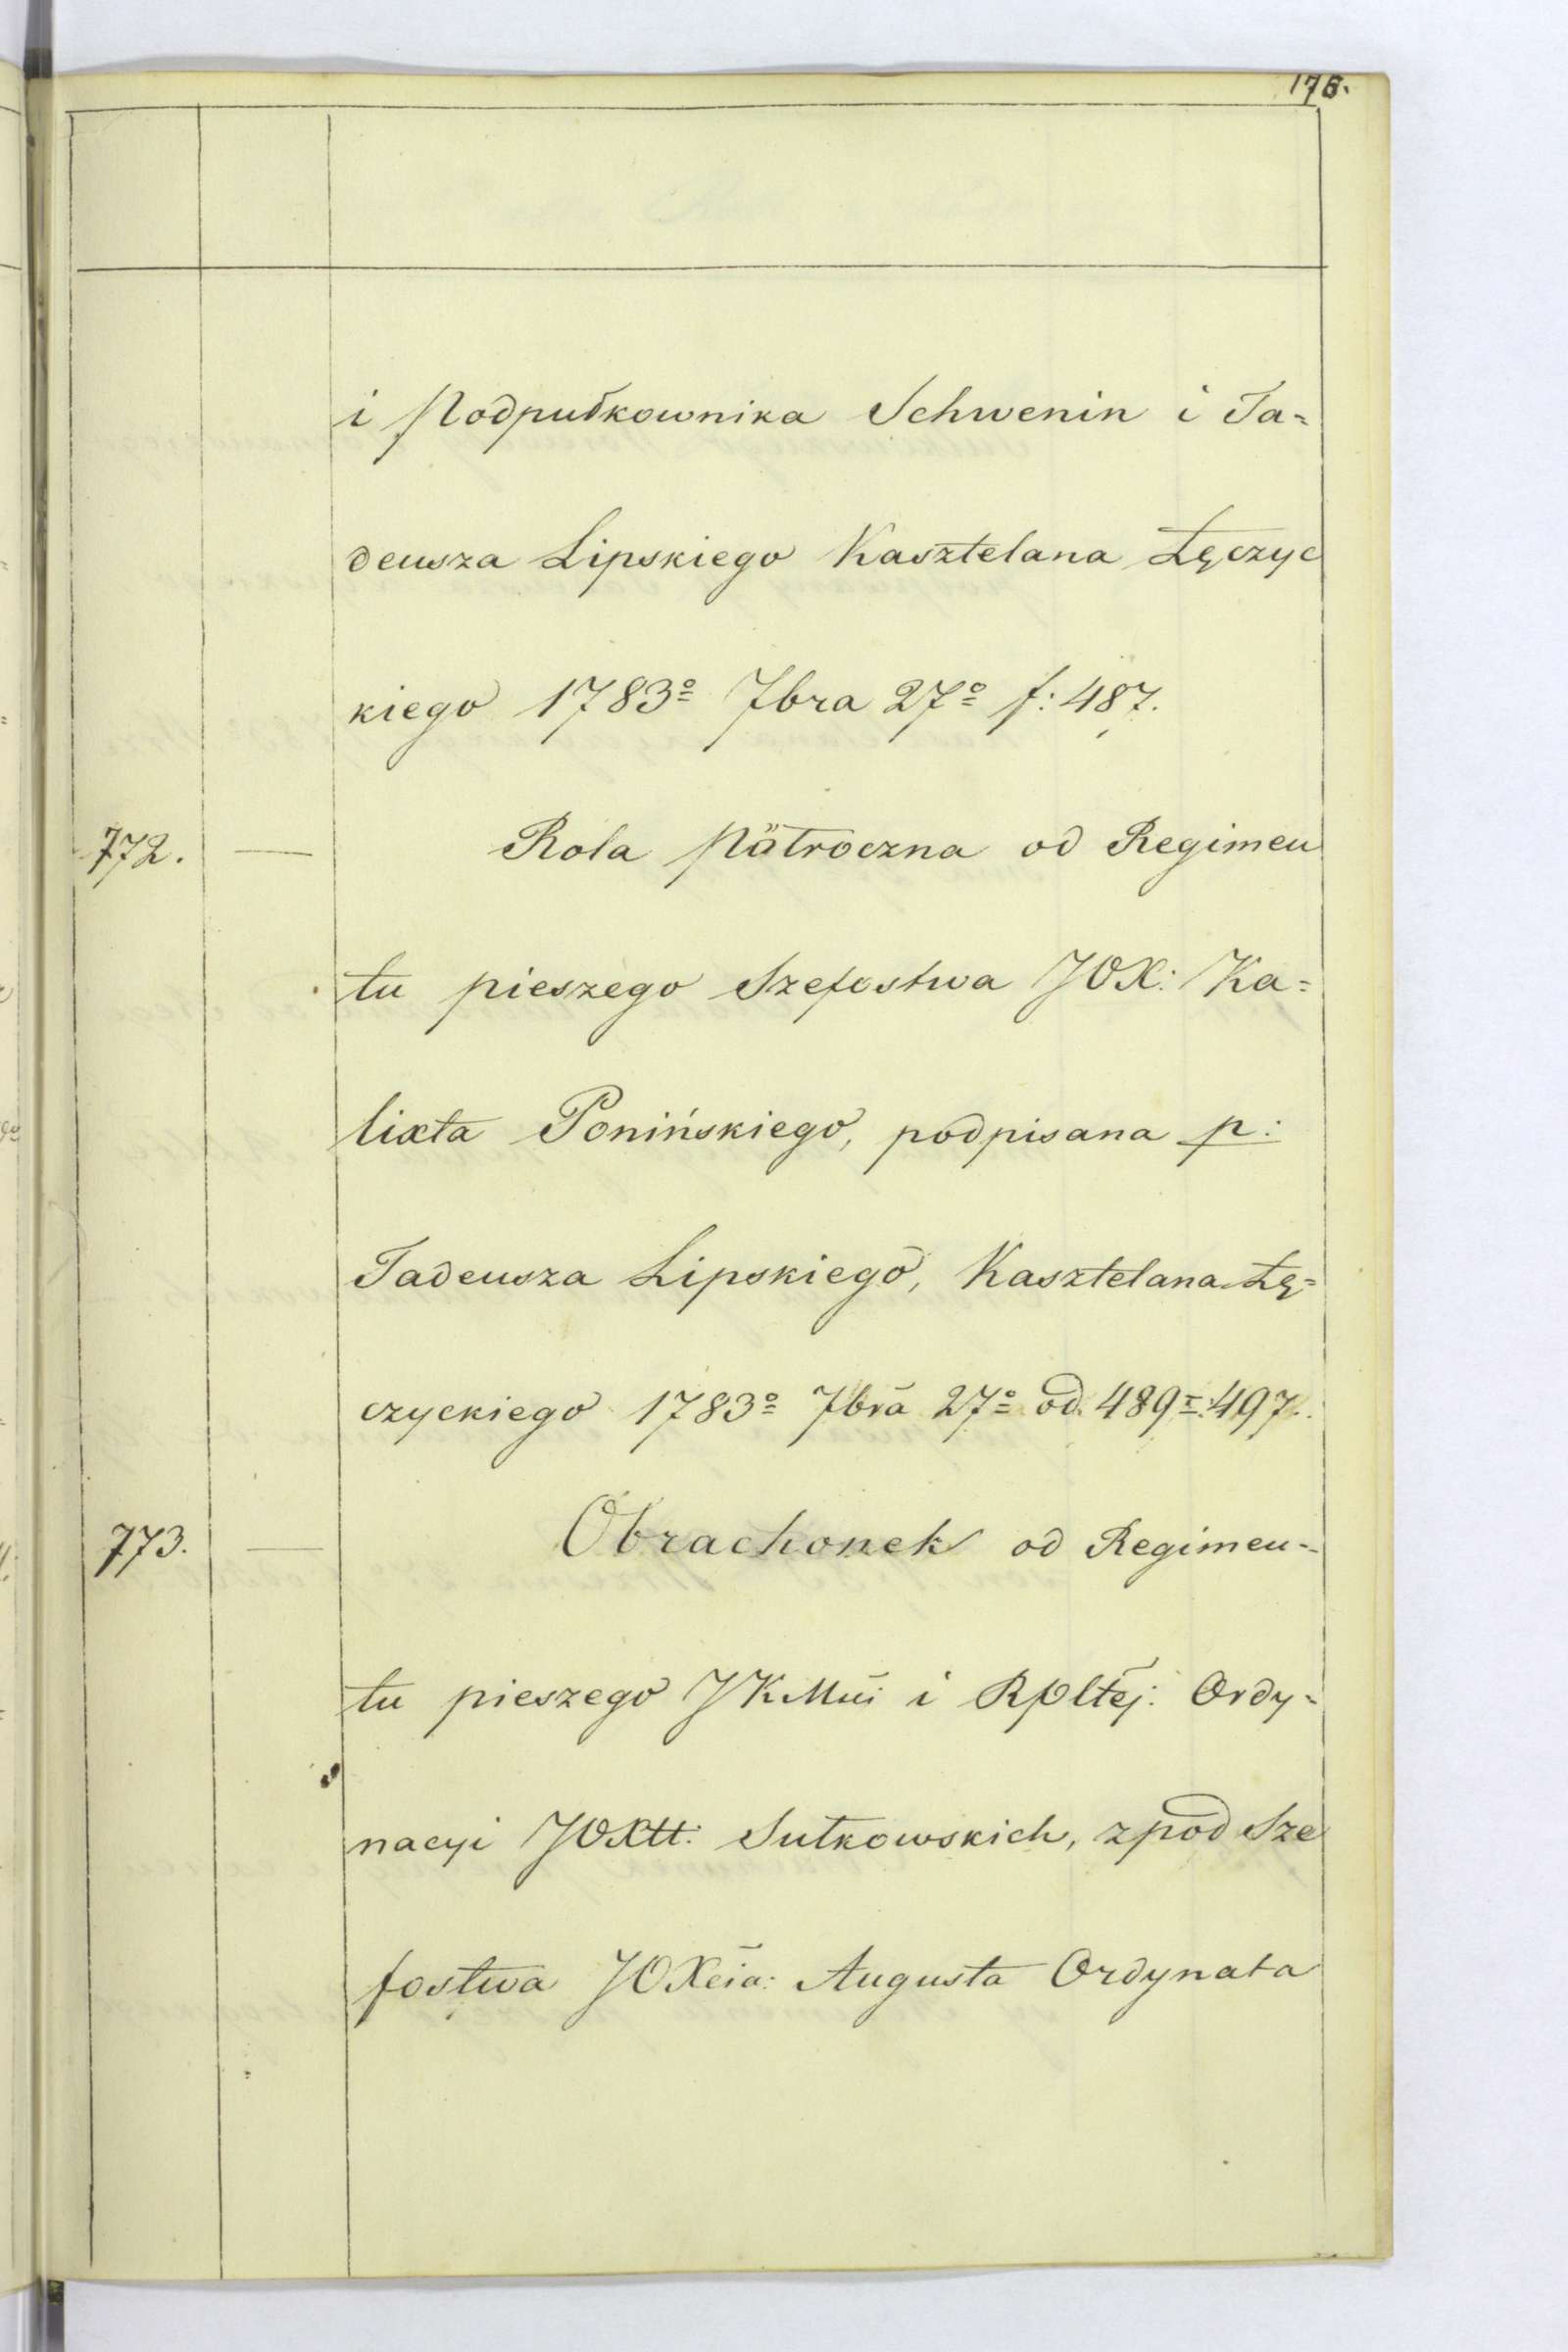 176.
i Podpułkownika Schwenin i Ta=
deusza Lipskiego Kasztelana Łęczyc
kiego 1783º 7bra 27º f: 487.
772. — Rola Półroczna od Regimen
tu pieszego Szefostwa JOX: Ka=
lixta Ponińskiego, podpisana p:
Tadeusza Lipskiego, Kasztelana Łę=
czyckiego 1783º 7bra 27º od 489 I: 497.
773. — Obrachonek od Regimen=
tu pieszego JKMci i Rpltej: Ordy=
nacyi JOXtt: Sułkowskich, zpod Sze
fostwa JOXcia: Augusta Ordynata